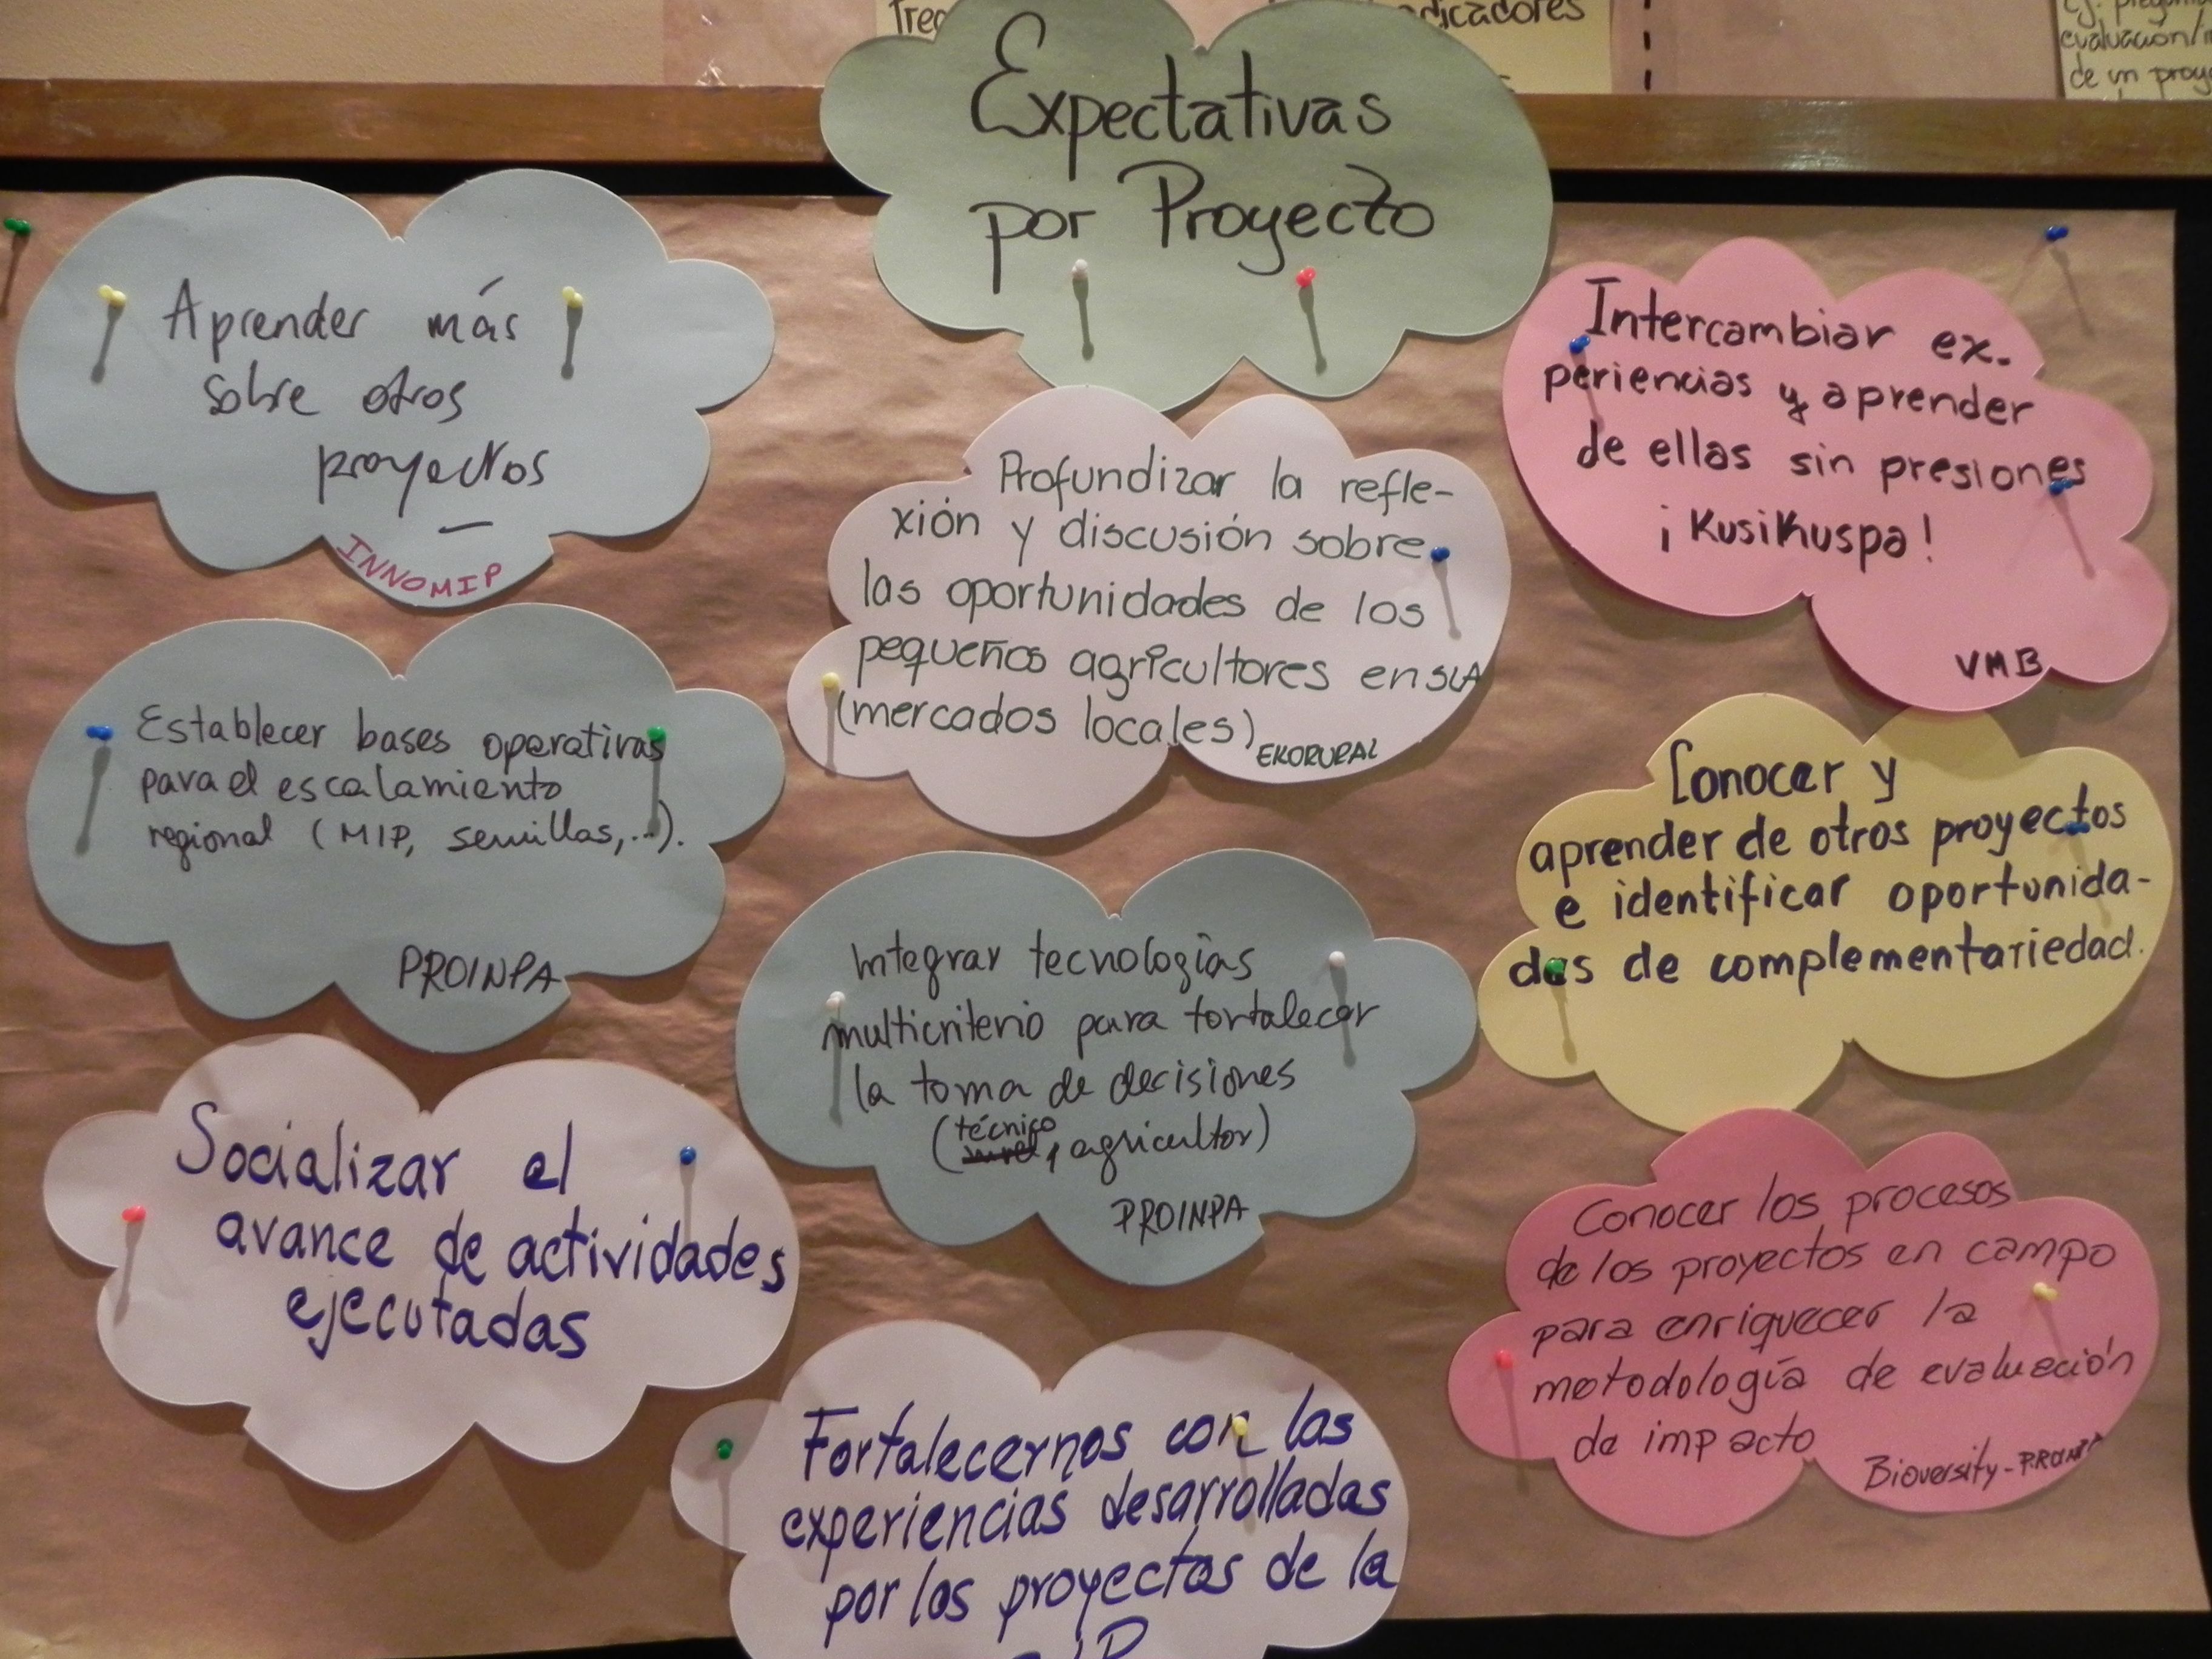 dicadores
evaluación/i
de un proye
Expectativas
por Proyecto
Aprender más
sobre otros
proyectos
INNOMIP
Establecer bases operativas
para el escalamiento
regional (MIP, semillas,...).
PROINPA
Socializar el
avance de actividades
ejecutadas
Profundizar la refle-
xión y discusión sobre
las oportunidades de los
pequeños agricultores en SLA
(mercados locales)
EKORURAL
Integrar tecnologias
multicriterio para fortalecer
la toma de decisiones
(técnico, agricultor)
PROINPA
Fortalecernos con las
experiencias desarrolladas
por los proyectos de la
Intercambiar ex-
periencias y aprender
de ellas sin presiones
¡Kusikuspa!
VMB
Conocer y
aprender de otros proyectos
e identificar oportunida-
des de complementariedad.
Conocer los procesos
de los proyectos en campo
para enriquecer la
metodología de evaluación
de impacto
Bioversity-PROINPA